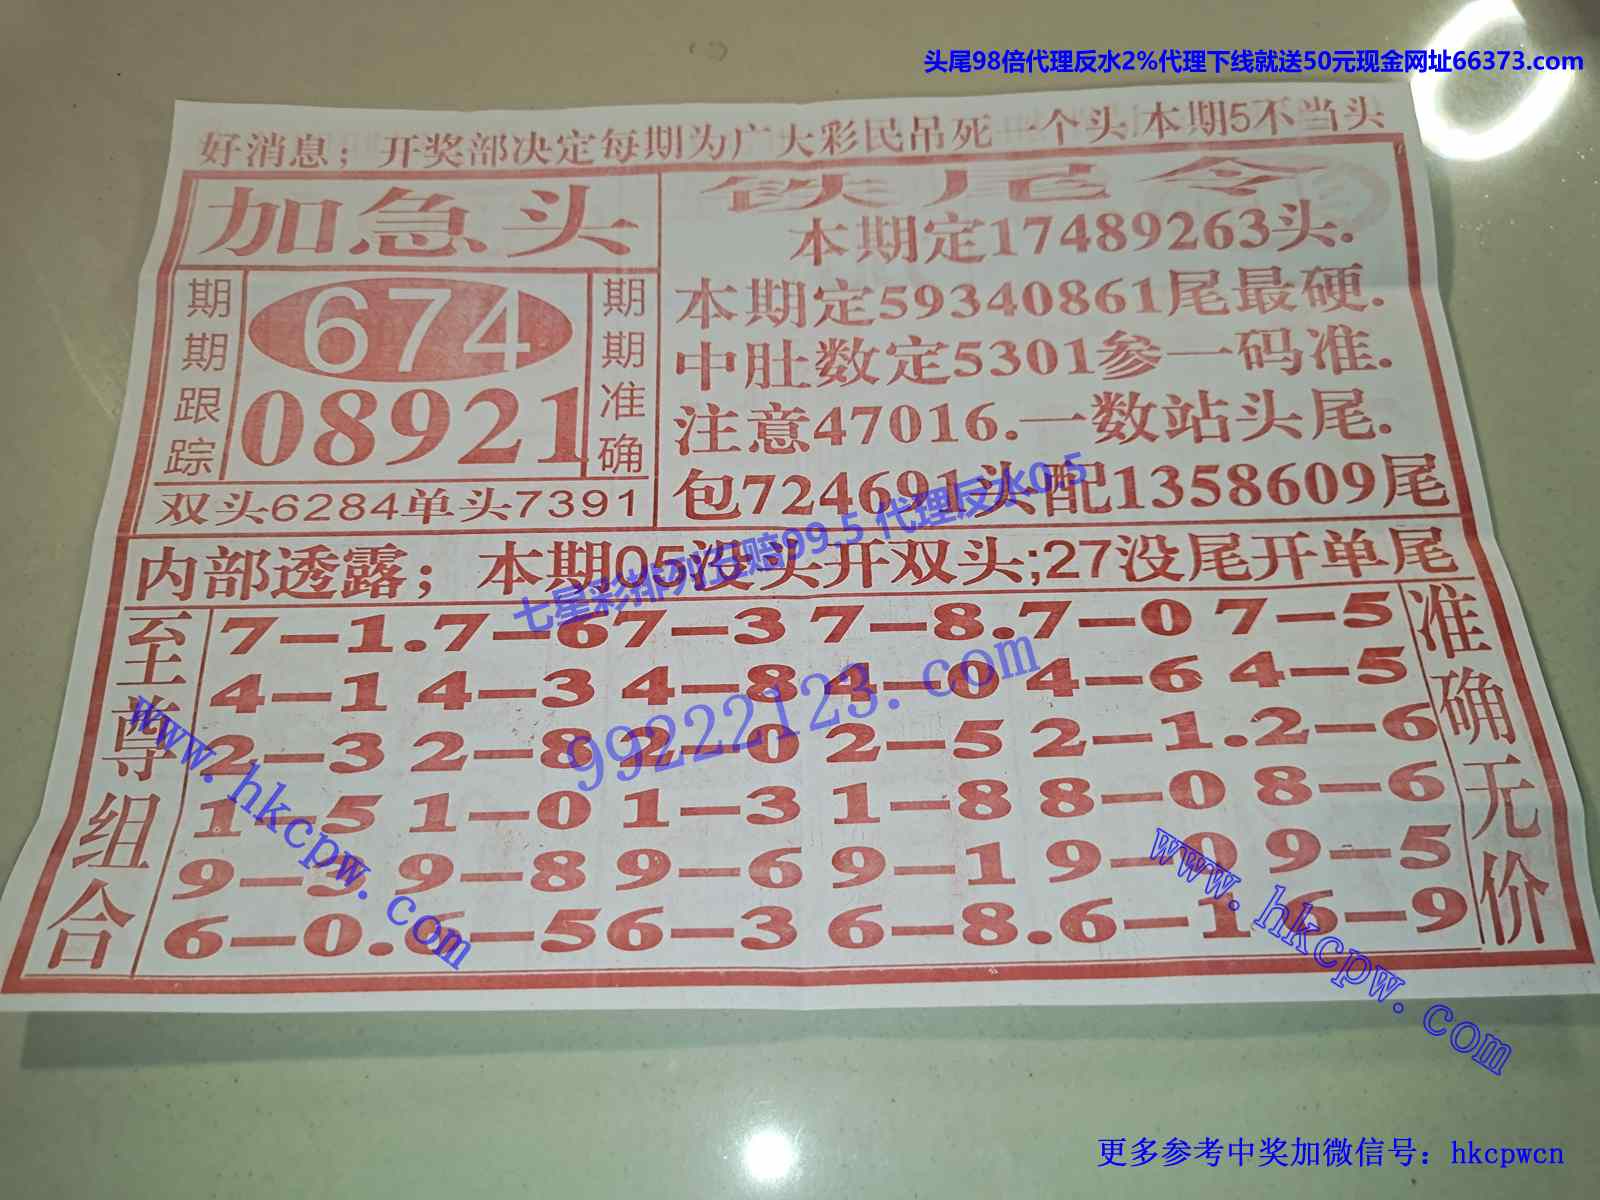 头尾98倍代理反水2%代理下线就送50元现金网址66373.com
好消息；开奖部决定每期为广大彩民吊死一个头本期5不当头
加急头
期期跟踪
674
08921
期期准确
双头6284单头7391
铁尾令
本期定17489263头.
本期定59340861尾最硬.
中肚数定5301参一码准.
注意47016.一数站头尾.
包724691头配1358609尾
七星彩排列五赔99.5 代理反水0.5
内部透露；本期05没头开双头;27没尾开单尾
至尊组合
7—1.7—67—3 7—8.7—0 7—5
4—1 4—3 4—8 4—0 4—6 4—5
2—3 2—8 2—0 2—5 2—1.2—6
1—5 1—0 1—3 1—8 8—0 8—6
9—3 9—8 9—6 9—1 9—0 9—5
6—0.6—56—3 6—8.6—1 6—9
准确无价
99222123.com
www.hkcpw.com
www.hkcpw.com
更多参考中奖加微信号：hkcpwcn